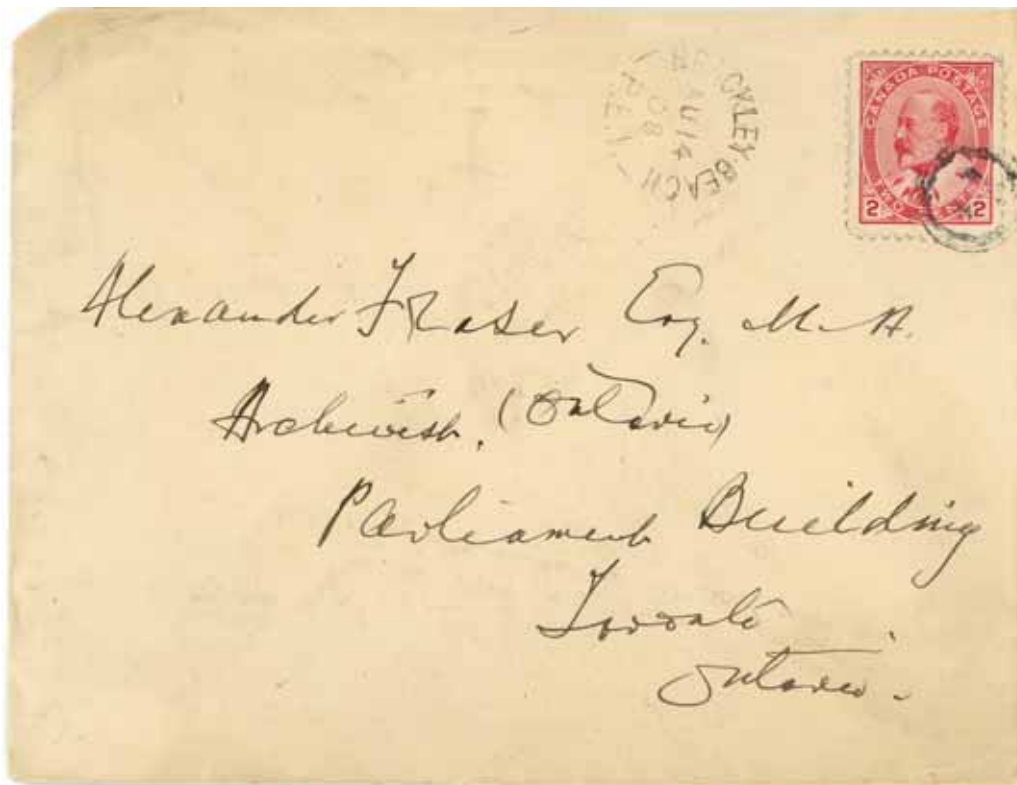 BRACKLEY BEACH
AU 14
08
P.E.I.
CANADA POSTAGE
TWO CENTS
2 2
Alexander Fraser Esq. M.A.
Archivist. (Ontario)
Parliament Building
Toronto
Ontario.